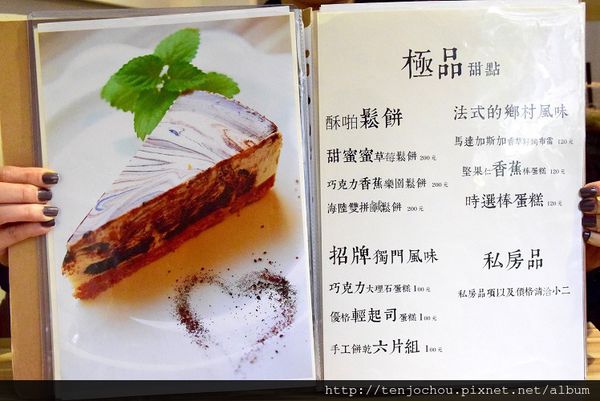 極品甜點
酥啪鬆餅
甜蜜蜜草莓鬆餅 200元
巧克力香蕉樂園鬆餅 200元
海陸雙拼鹹鬆餅 200元
法式的鄉村風味
馬達加斯加香草籽烤布蕾 120元
堅果仁香蕉棒蛋糕 120元
時選棒蛋糕 120元
招牌獨門風味
巧克力大理石蛋糕 100元
優格輕起司蛋糕 100元
手工餅乾六片組 100元
私房品
私房品項以及價格請洽小二
http://tenjochou.pixnet.net/album